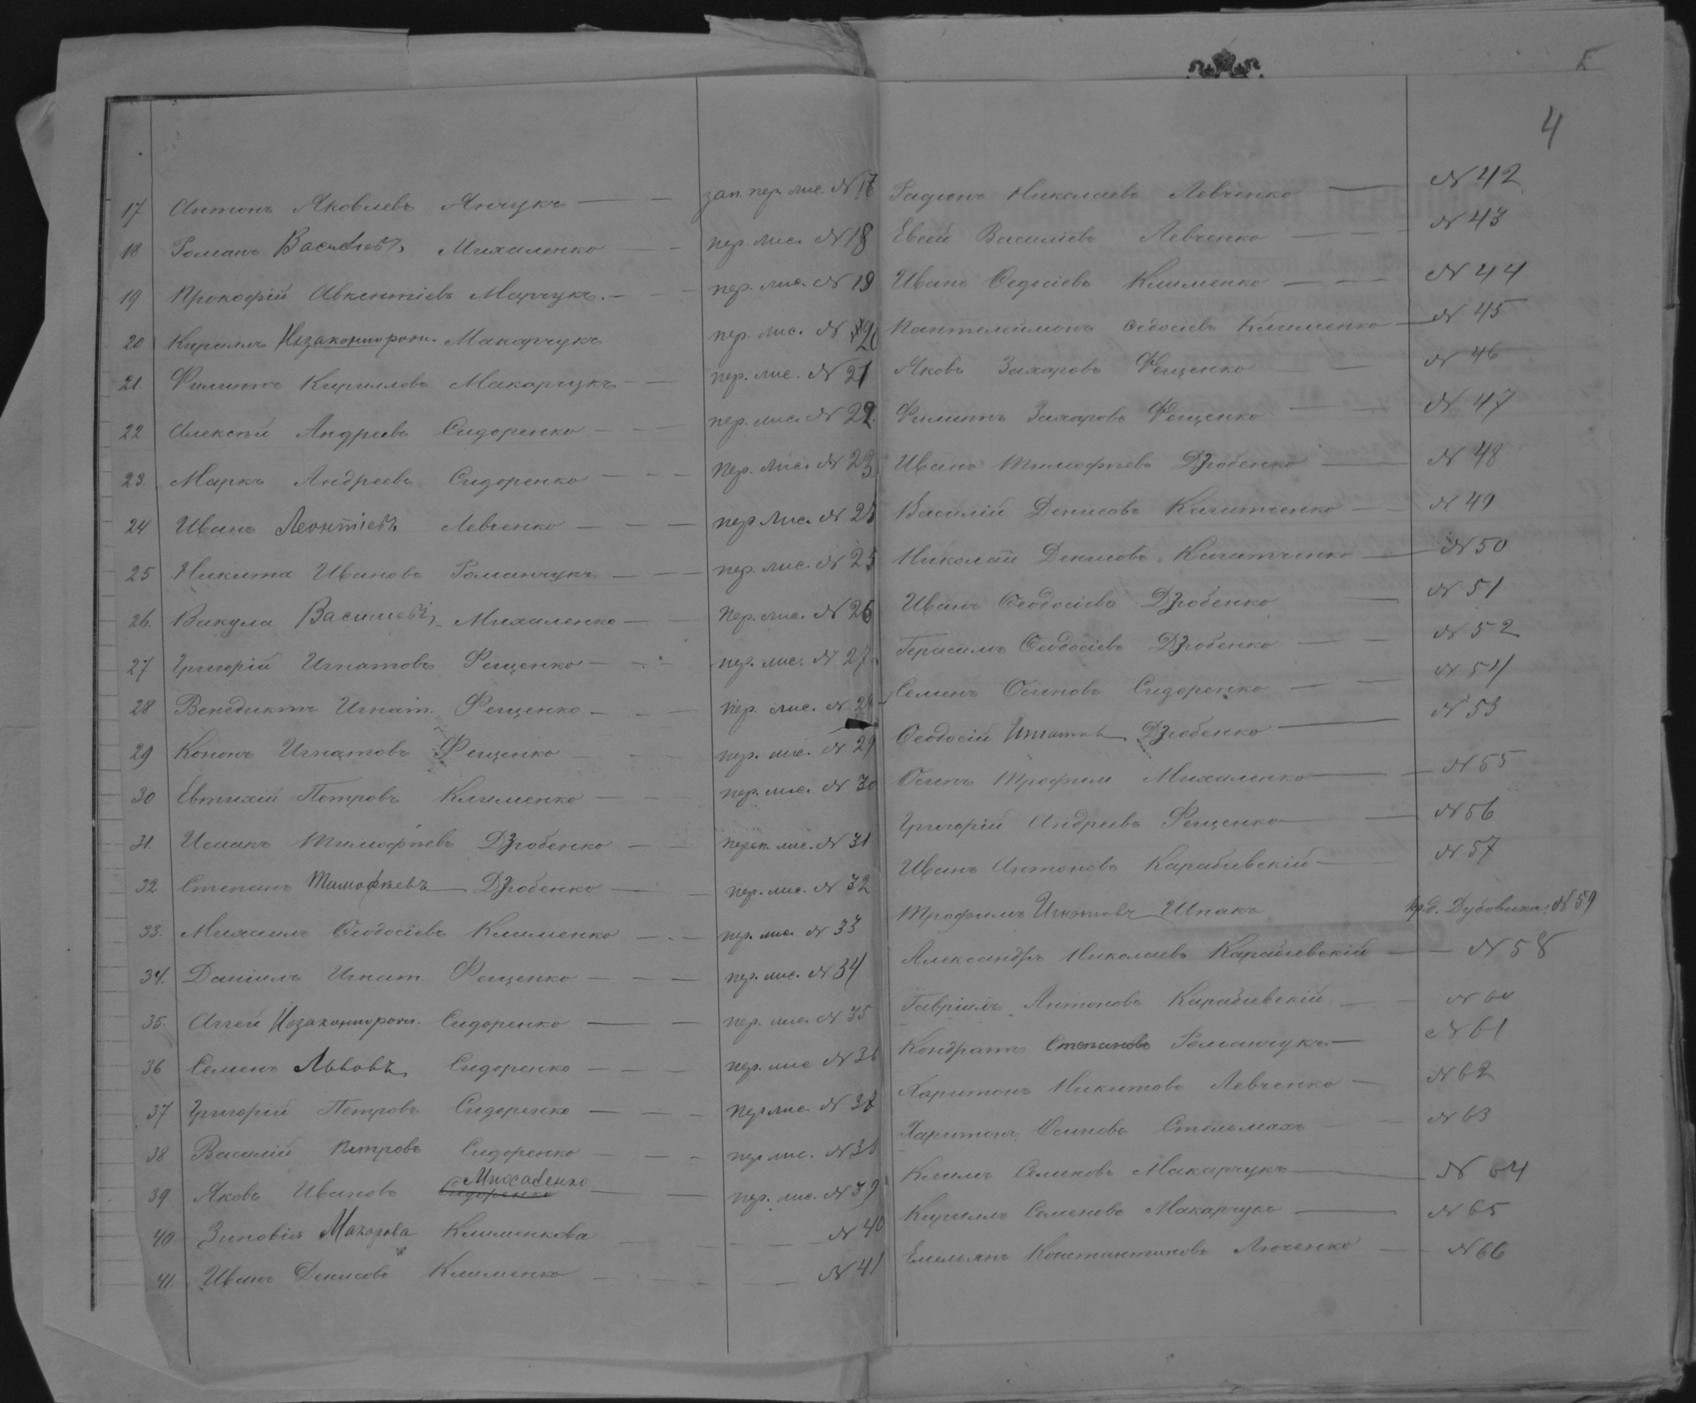 17 Антонъ Яковлевъ Янчукъ — зап. пер. лис. №
18 Романъ Васильевъ Михаленко — пер. лис. № 18
19 Прокофій Авксентіевъ Марчукъ — пер. лис. № 19
20 Кириллъ Незаконнорожн. Макарчукъ пер. лис. № 20
21 Филиппъ Кирилловъ Макарчукъ — пер. лис. № 21
22 Алексѣй Андреевъ Сидоренко — пер. лис. № 22
23 Маркъ Андреевъ Сидоренко — пер. лис. № 23
24 Иванъ Леонтіевъ Левченко — пер. лис. №
25 Никита Ивановъ Романчукъ — пер. лис. № 25
26. Вакула Васильевъ Михаленко — пер. лис. № 26
27 Григорій Игнатовъ Фещенко — пер. лис. № 27
28 Венедиктъ Игнат. Фещенко — пер. лис. №
29 Кононъ Игнатовъ Фещенко — пер. лис. № 29
30 Евтихій Петровъ Клименко — пер. лис. № 30
31 Исаакъ Тимофѣевъ Дзюбенко — переп. лис. № 31
32 Степанъ Тимофѣевъ Дзюбенко — пер. лис. № 32
33. Михаилъ Ѳеодосіевъ Клименко — пер. лис. № 33
34. Даніилъ Игнат. Фещенко — пер. лис. № 34
35. Аггей Незаконнорожн. Сидоренко — пер. лис. № 35
36 Семенъ Львовъ Сидоренко — пер. лис. № 36
37 Григорій Петровъ Сидоренко — пер. лис. №
38 Василій Петровъ Сидоренко — пер. лис. № 38
39 Яковъ Ивановъ Сидоренко — пер. лис. № 39
40 Зиновія Клименкова — № 40
41. Иванъ Денисовъ Клименко — № 41
4
Радіонъ Николаевъ Левченко — № 42
Евсѣй Василіевъ Левченко — № 43
Иванъ Ѳедосіевъ Клименко — № 44
Пантелеймонъ Ѳедосіевъ Клименко — № 45
Яковъ Захаровъ Фещенко — № 46
Филиппъ Захаровъ Фещенко — № 47
Иванъ Тимофѣевъ Дзюбенко — № 48
Василій Денисовъ — № 49
Николай Денисовъ — № 50
Иванъ Ѳеодосіевъ Дзюбенко — № 51
Герасимъ Ѳеодосіевъ Дзюбенко — № 52
Семенъ Осиповъ Сидоренко — № 54
Ѳеодосій Игнатовъ Дзюбенко — № 53
Осипъ Трофим. Михаленко — № 55
Григорій Андреевъ Фещенко — № 56
Иванъ Антоновъ Карабіевскій — № 57
Трофимъ Игнатовъ Шпакъ Дубовика № 59
Александръ Николаевъ Карабіевскій — № 58
Гавріилъ Антоновъ Карабіевскій — № 60
Кондратъ Степановъ Романчукъ — № 61
Харитонъ Никитовъ Левченко — № 62
Харитонъ Осиповъ Стельмахъ — № 63
Климъ Семеновъ Макарчукъ — № 64
Кириллъ Семеновъ Макарчукъ — № 65
Емельянъ Константиновъ — № 66